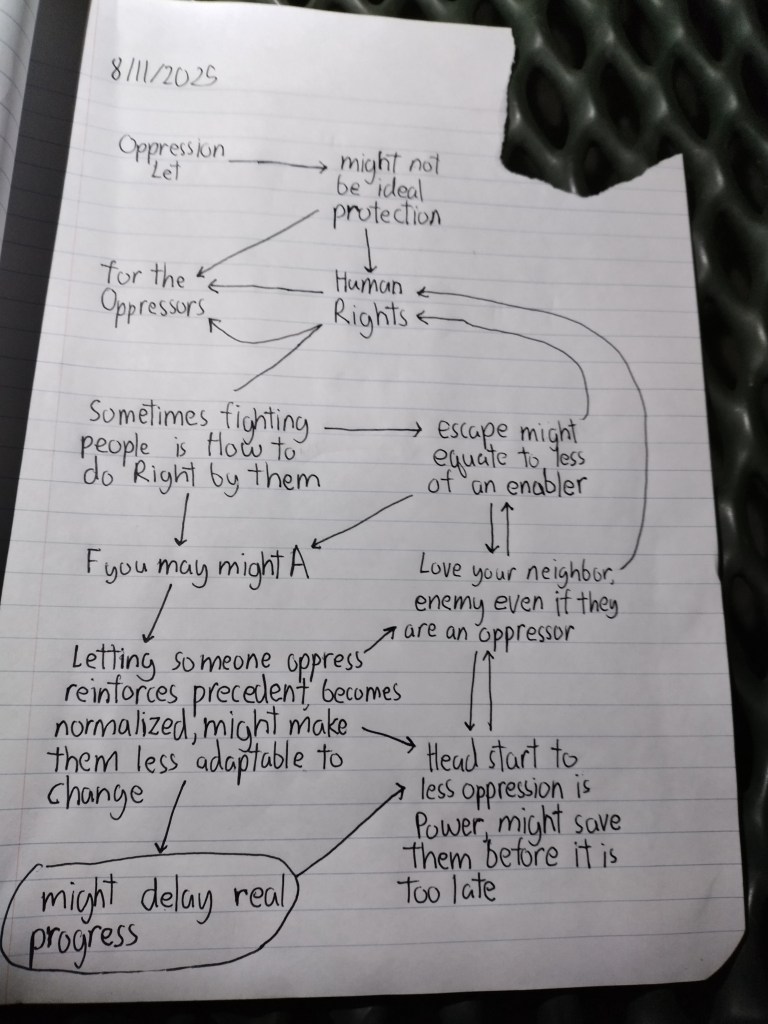 8/11/2025
Oppression
Let
might not
be ideal
protection
for the
Oppressors
Human
Rights
Sometimes fighting
people is How to
do Right by them
escape might
equate to less
of an enabler
F you may might A
Love your neighbor,
enemy even if they
are an oppressor
Letting someone oppress
reinforces precedent, becomes
normalized, might make
them less adaptable to
change
Head start to
less oppression is
Power, might save
them before it is
too late
might delay real
progress